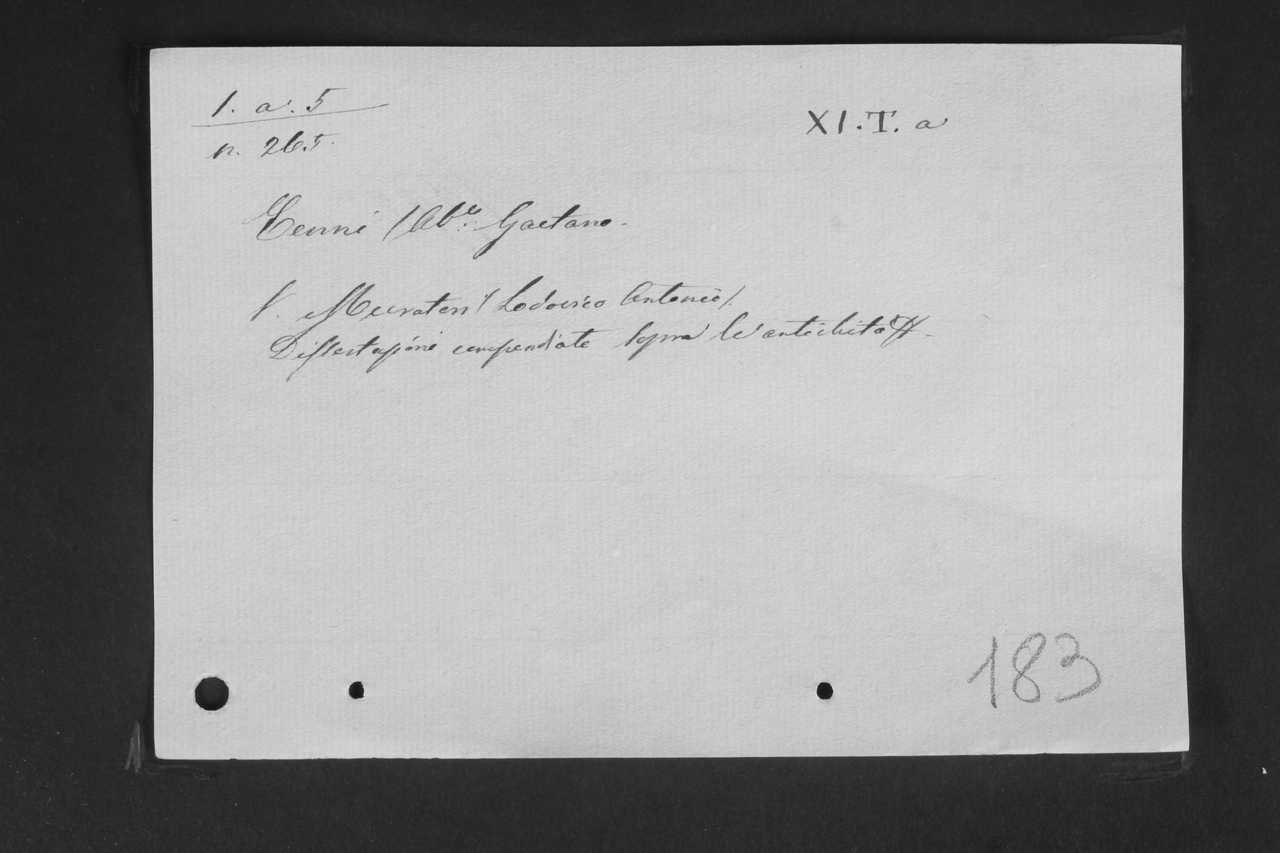 1. a. 5
n. 265.
XI.T. a
Cenni (Ab.e Gaetano.
V. Muratori (Lodovico Antonio).
Dissertazioni compendiate sopra le antichità
183